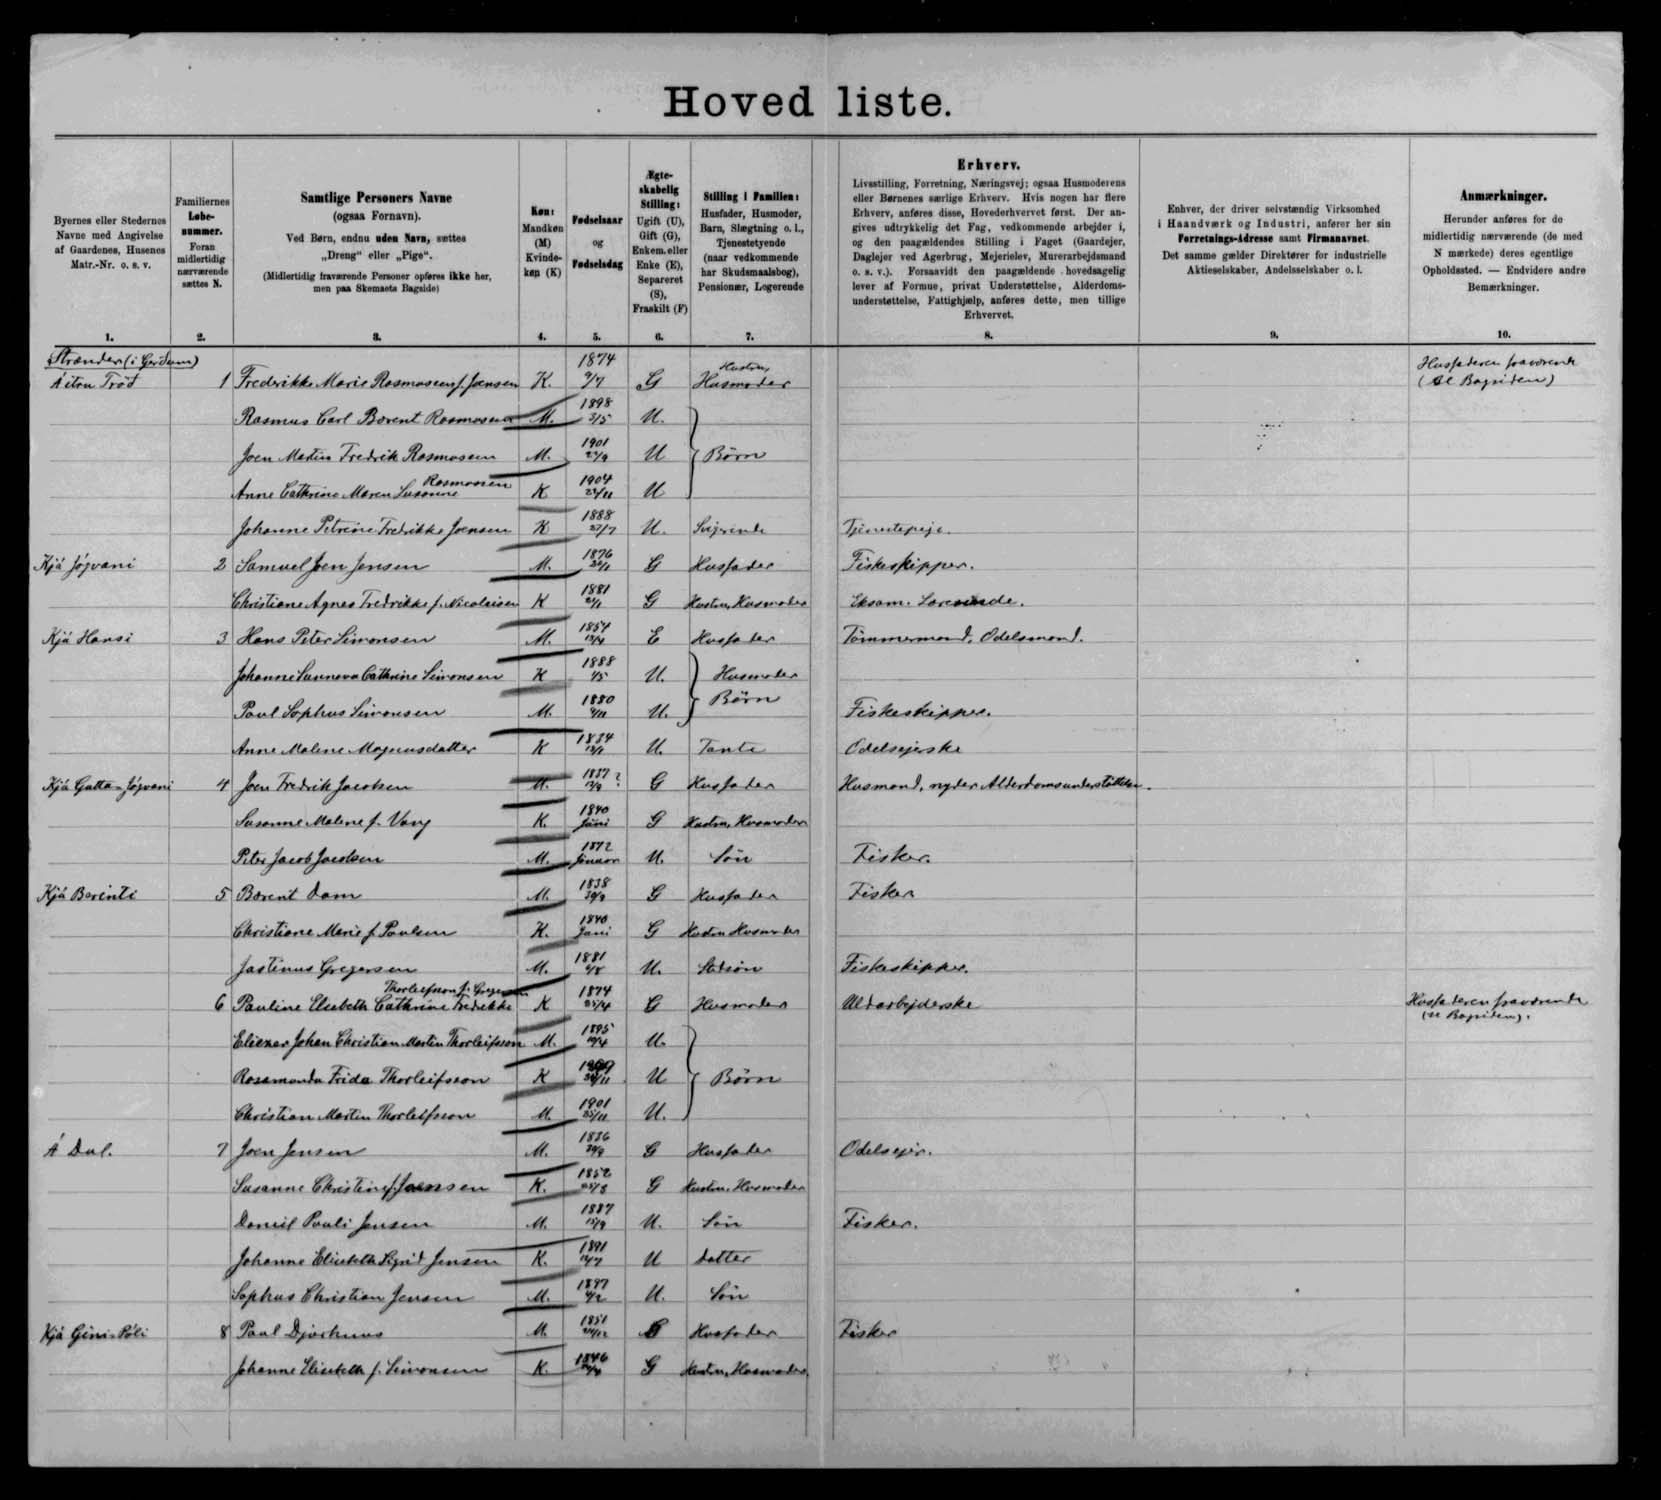 Hoved liste.
Byernes eller Stedernes
Navne med Angivelse
af Gaardenes, Husenes
Matr.-Nr. o. s. v.
Familiernes
Løbe-
nummer.
Foran
midlertidig
nærværende
sættes N.
Samtlige Personers Navne
(ogsaa Fornavn).
Ved Børn, endnu uden Navn, sættes
„Dreng" eller „Pige".
(Midlertidig fraværende Personer opføres ikke her,
men paa Skemaets Bagside)
Køn:
Mandkøn
(M)
Kvinde-
køn (K)
Fødselsaar
og
Fødselsdag
Ægte-
skabelig
Stilling:
Ugift (U),
Gift (G),
Enkem. eller
Enke (E),
Separeret
(S),
Fraskilt (F)
Stilling i Familien:
Husfader, Husmoder,
Barn, Slægtning o. l.,
Tjenestetyende
(naar vedkommende
har Skudsmaalsbog),
Pensionær, Logerende
Erhverv.
Livsstilling, Forretning, Næringsvej; ogsaa Husmoderens
eller Børnenes særlige Erhverv. Hvis nogen har flere
Erhverv, anføres disse, Hovederhvervet først. Der an-
gives udtrykkelig det Fag, vedkommende arbejder i,
og den paagældendes Stilling i Faget (Gaardejer,
Daglejer ved Agerbrug, Mejerielev, Murerarbejdsmand
o. s. v.). Forsaavidt den paagældende hovedsagelig
lever af Formue, privat Understøttelse, Alderdoms-
understøttelse, Fattighjælp, anføres dette, men tillige
Erhvervet.
Enhver, der driver selvstændig Virksomhed
i Haandværk og Industri, anfører her sin
Forretnings-Adresse samt Firmanavnet.
Det samme gælder Direktører for industrielle
Aktieselskaber, Andelsselskaber o. l.
Anmærkninger.
Herunder anføres for de
midlertidig nærværende (de med
N mærkede) deres egentlige
Opholdssted. — Endvidere andre
Bemærkninger.
1. 2. 3. 4. 5. 6. 7. 8. 9. 10.
Strænder (i Gerdum)
Áitru Trøð 1 Frederikke Marie Rasmussen f. Joensen K. 1874 9/7 G Hustru, Husmoder Husfaderen fraværende
(se Bagsiden)
Rasmus Carl Barent Rasmussen M. 1898 3/5 U.
Joen Martin Fredrik Rasmussen M. 1901 24/9 U Børn
Anne Cathrine Maren Susanne Rasmussen K 1904 24/11 U
Johanne Petrine Fredrikke Joensen K 1888 27/7 U. Svigerinde Tjenestepige.
Kjá Jógvani 2 Samuel Joen Jensen M. 1876 G Husfader Fiskeskipper.
Christiane Agnes Fredrikke f. Nicolaisen K 1881 G Hustru, Husmoder Eksam. Lærerinde.
Kjá Hansi 3 Hans Peter Simonsen M. 1854 E Husfader Tømmermand, Odelsmand.
Johanne Sunneva Cathrine Simonsen K 1888 1/5 U. Husmoder
Børn
Poul Sophus Simonsen M. 1880 U. Fiskeskipper.
Anne Malene Magnusdatter K 1834 U. Tante Odelsejerske
Kjá Gutta-Jógvani 4 Joen Fredrik Jacobsen M. 1837? G Husfader Husmand, nyder Alderdomsunderstøttelse.
Susanne Malene f. Vang K. 1840 Juni G Hustru, Husmoder
Peter Jacob Jacobsen M. 1872 Januar U. Søn Fisker.
Kjá Berinti 5 Barent Dam M. 1838 30/9 G Husfader Fisker
Christiane Marie f. Poulsen K. 1840 Juni G Hustru Husmoder
Justinus Gregersen M. 1881 U. Stedsøn Fiskeskipper.
6 Pauline Elsebeth Cathrine Fredrikke Thorleifsson f. Gregersen K 1874 25/4 G Husmoder Uldarbejderske Husfaderen fraværende
(se Bagsiden).
Eliezer Johan Christian Martin Thorleifsson M. 1895 U.
Rosamunda Frida Thorleifsson K U Børn
Christian Martin Thorleifsson M. 1901 25/11 U.
Á Dul. 7 Joen Jensen M. 1836 G Husfader Odelsejer.
Susanne Christine f. Joensen K. 1852 G Hustru, Husmoder
Daniel Pauli Jensen M. 1887 U. Søn Fisker.
Johanne Elisebeth Sigrid Jensen K. 1891 U Datter
Sophus Christian Jensen M. 1897 U. Søn
Kjá Gini-Póli 8 Poul Djurhuus M. 1851 G Husfader Fisker
Johanne Elisebeth f. Simonsen K. 1846 G Hustru, Husmoder.